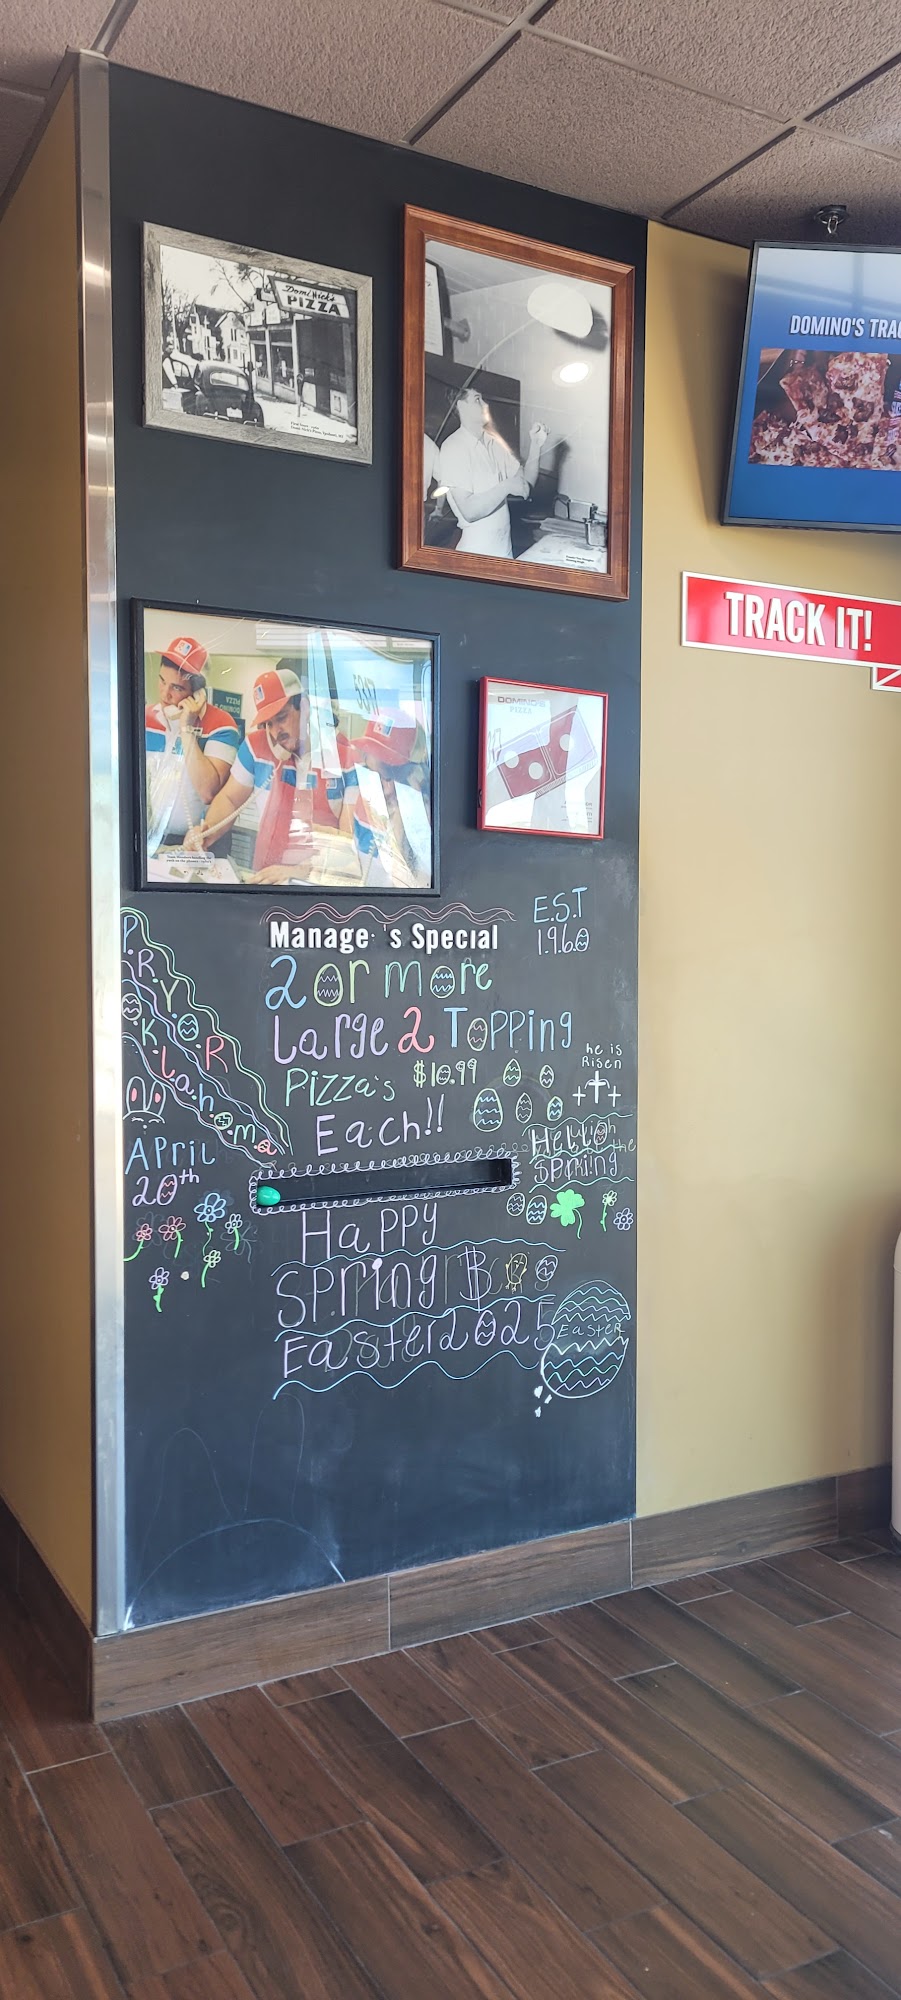 Domi Nick's
PIZZA
DOMINO'S TRA
TRACK IT!
DOMINO'S
PIZZA
E.S.T
1.9.6.0
Manage 's Special
2 or more
Large 2 Topping
Pizza's $10.99
Each!!
PRYOR
OKLahoma
he is
Risen
April
20th
Spring
Happy
Spring
Easter 2025
Easter